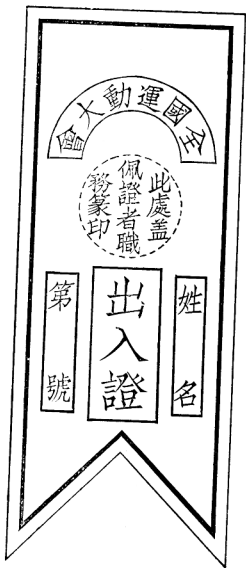 全國運動大會
此處盖
佩證者職
務篆印
姓名
出入證
第 號